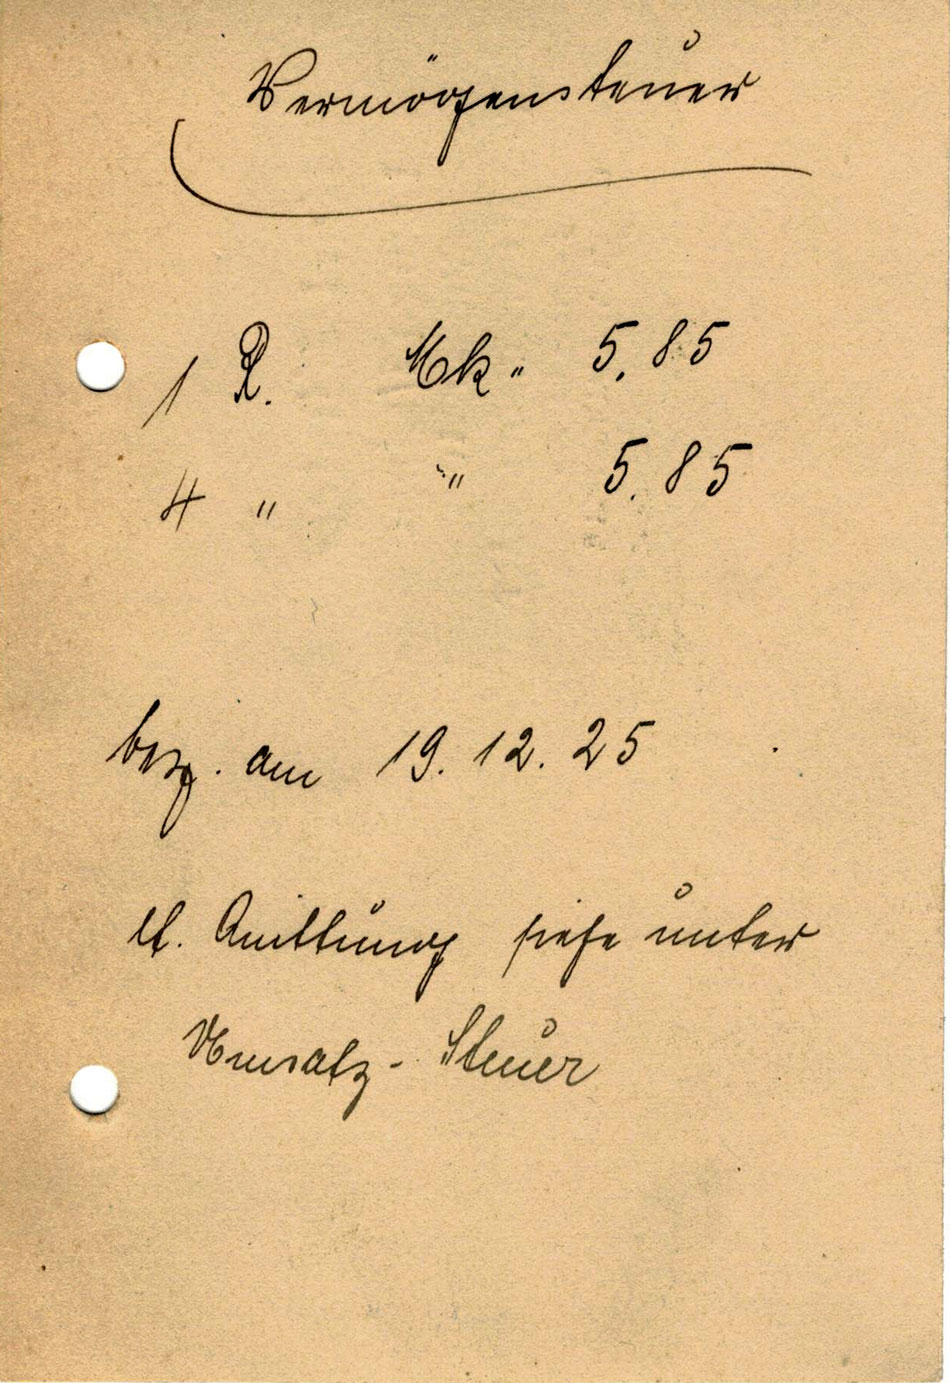 Vermögensteuer
1 R. Mk. 5,85
4 " " 5.85
bez. am 19.12.25
lt. Quittung siehe unter
Umsatz-Steuer